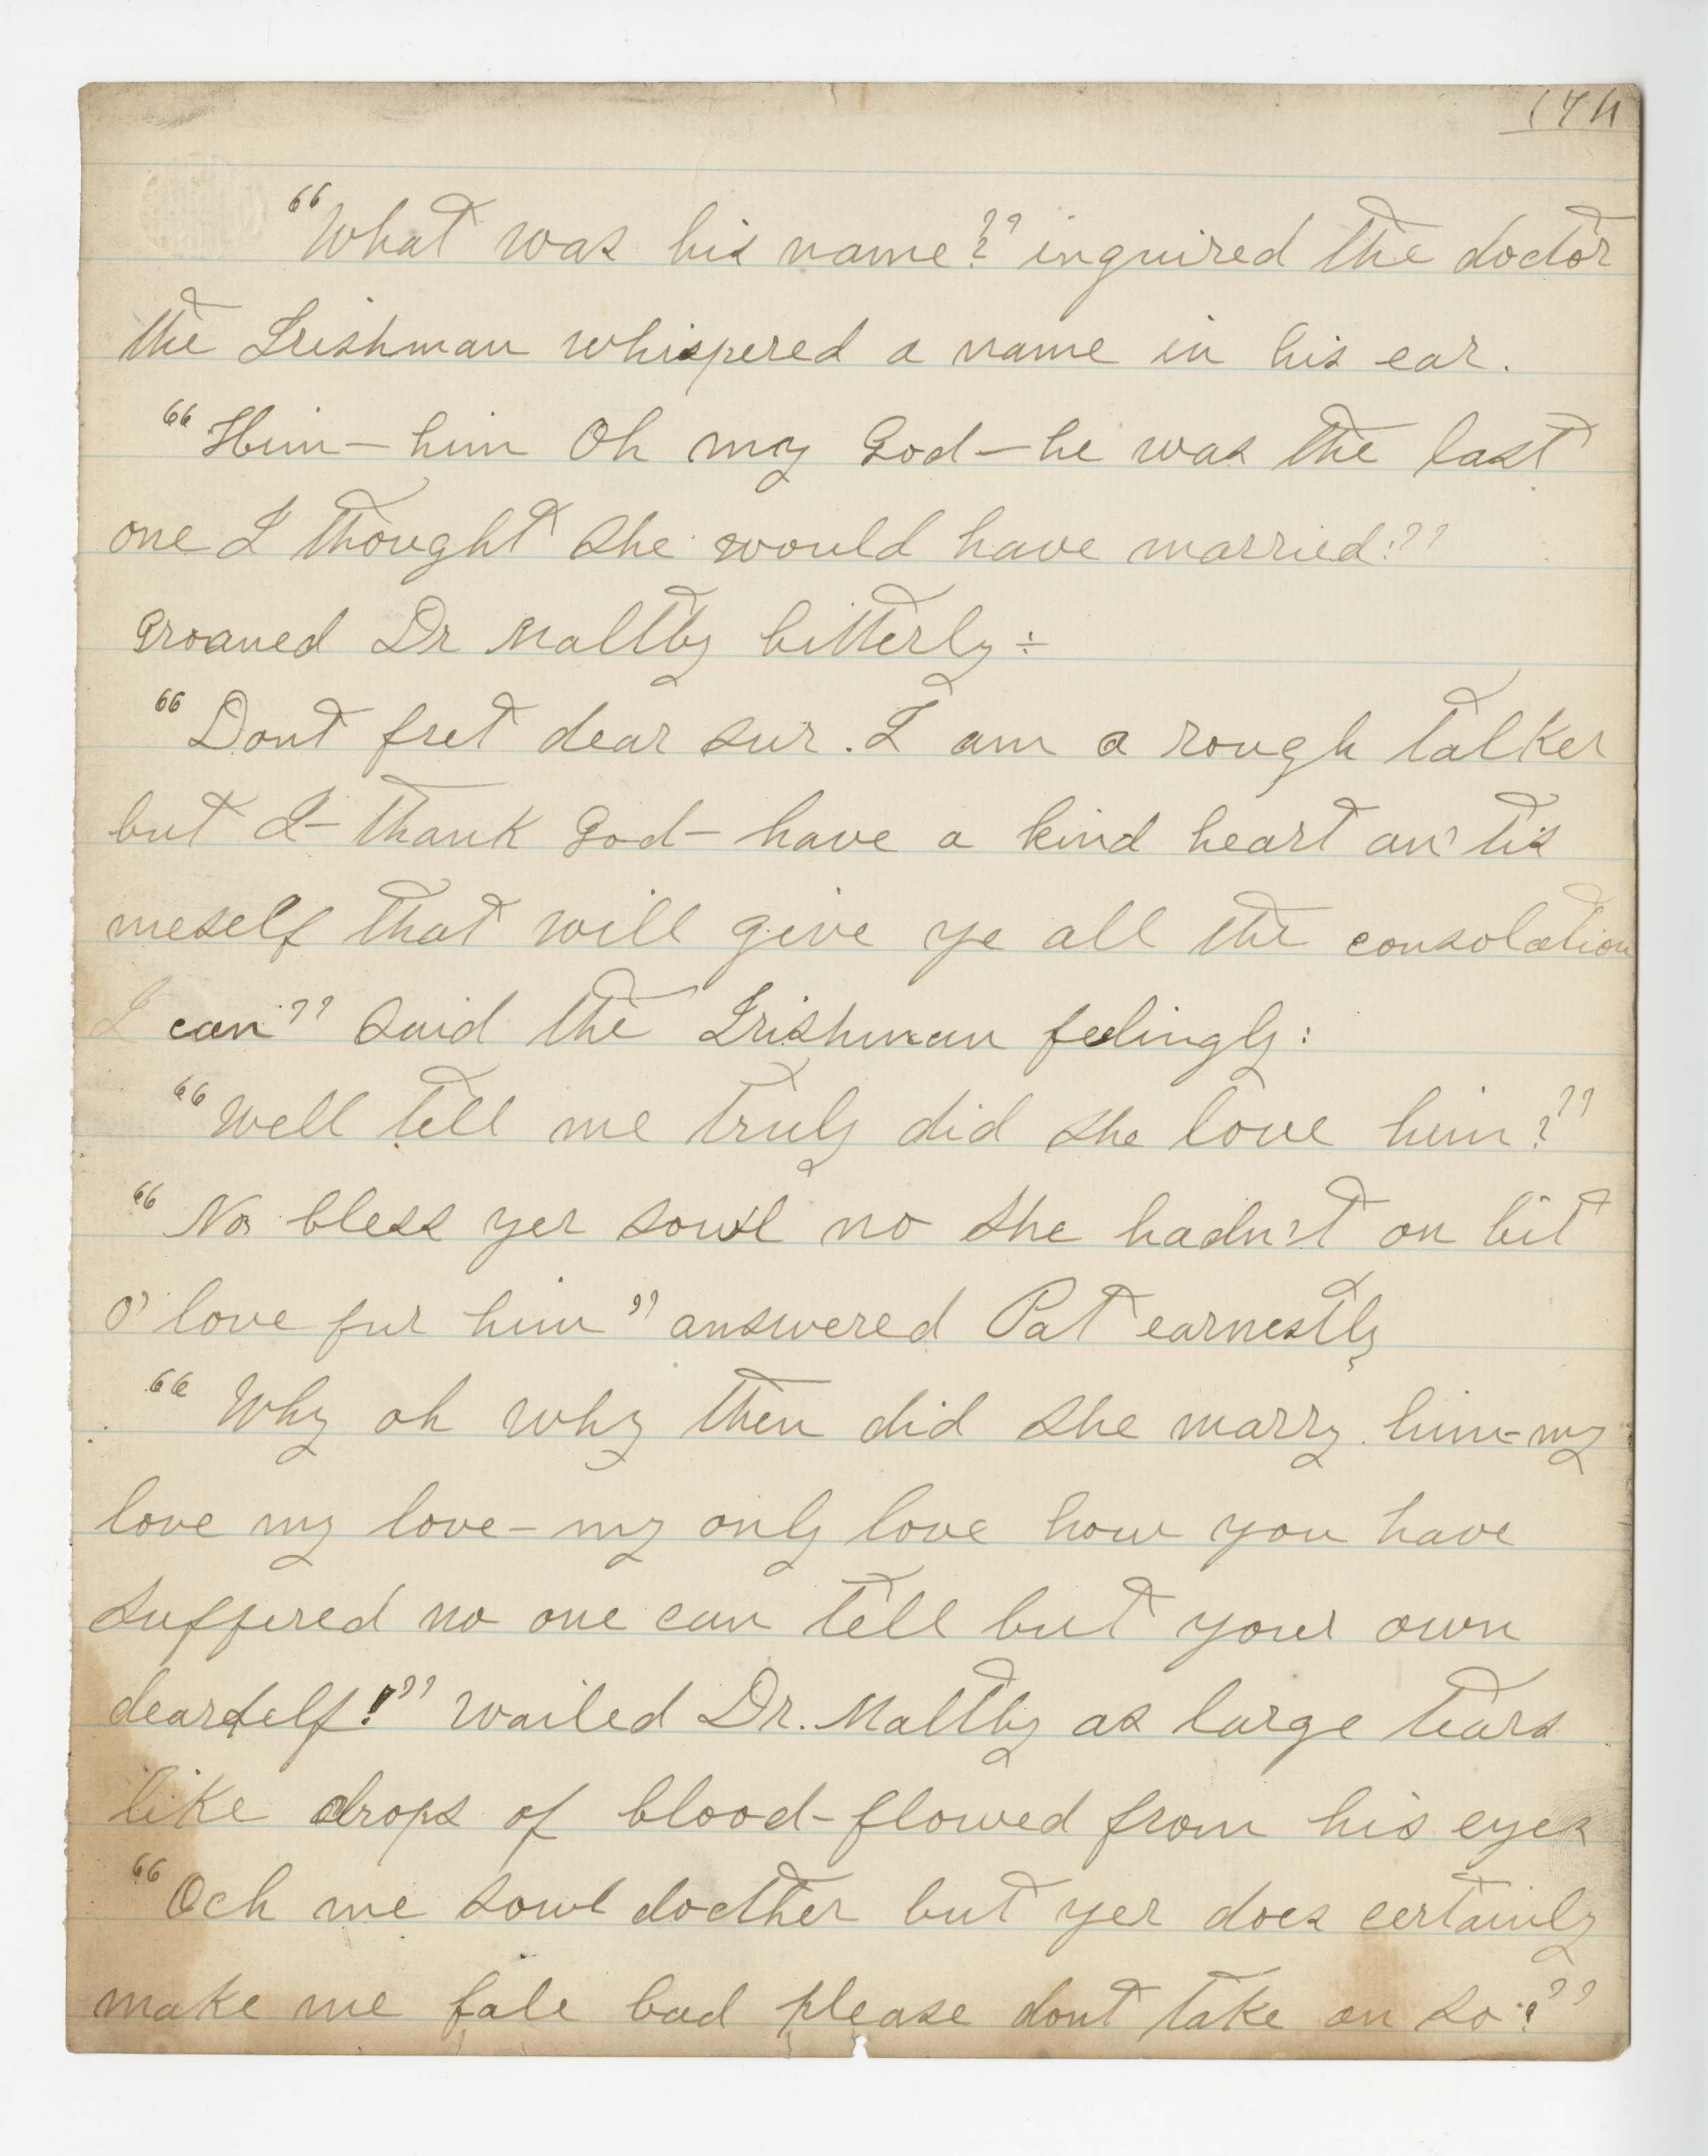 174
"What was his name?" inquired the doctor
the Irishman whispered a name in his ear.
"Him – him Oh my God – he was the last
one I thought she would have married:"
Groaned Dr Maltby bitterly ÷
"Dont fret dear sur. I am a rough talker
but I – thank God – have a kind heart an' tis
meself that will give ye all the consolation
I can" said the Irishman feelingly:
"Well tell me truly did she love him?"
"No bless yer sowl no she hadn't on bit
o' love fur him" answered Pat earnestly
"Why oh why then did she marry him – my
love my love – my only love how you have
suffered no one can tell but your own
dearself!" wailed Dr. Maltby as large tears
like drops of blood – flowed from his eyes
"Och me sowl docther but yer does certainly
make me fale bad please dont take on so:"